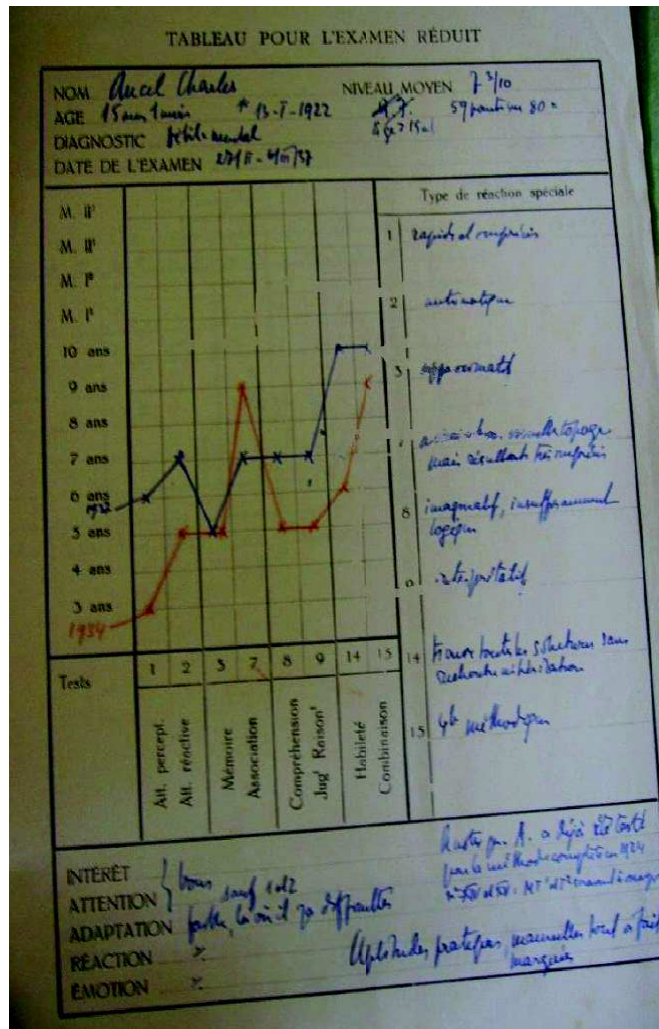 TABLEAU POUR L'EXAMEN RÉDUIT
NOM Ancel Charles NIVEAU MOYEN 7 3/10
AGE 15 ans 1 mois * 13-I-1922 59 points sur 80
DIAGNOSTIC débile mental
DATE DE L'EXAMEN 27/II - 4/III/37
Type de réaction spéciale
M. IIˢ
M. IIⁱ
M. Iˢ
M. Iⁱ
10 ans
9 ans
8 ans
7 ans
6 ans
1937
5 ans
4 ans
3 ans
1934
1 rapide et imprécis
2 automatique
3 approximatif
7 mais résultats très imprécis
8 imaginatif, insuffisamment
logique
9 interprétatif
14 trouve toutes les solutions sans
15 méthodique
Tests 1 2 3 7 8 9 14 15
Att. percept.
Att. réactive
Mémoire
Association
Compréhension
Jugᵗ Raisonᵗ
Habileté
Combinaison
INTÉRÊT
ATTENTION } bons sauf 1 et 2
ADAPTATION faible, là où il y a difficultés
RÉACTION
ÉMOTION
A. a déjà été testé
par la méthode complète en 1934
Aptitudes pratiques, manuelles tout à fait
marquées